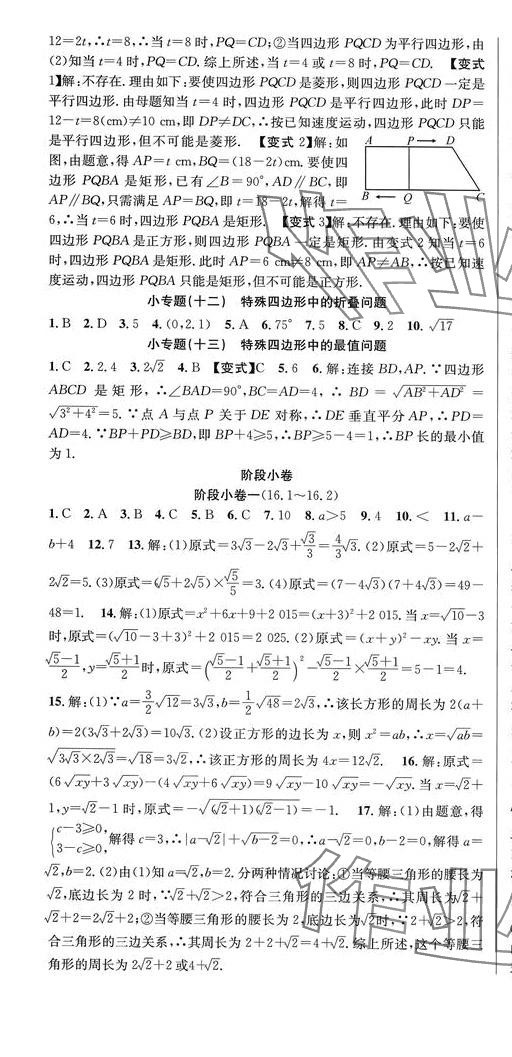 12=2t,∴t=8,∴当 t=8 时,PQ=CD;②当四边形 PQCD 为平行四边形,由
(2)知当 t=4 时,PQ=CD. 综上所述,当 t=4 或 t=8 时,PQ=CD. 【变式
1】解:不存在. 理由如下:要使四边形 PQCD 是菱形,则四边形 PQCD 一定是
平行四边形. 由母题知当 t=4 时,四边形 PQCD 是平行四边形,此时 DP=
12-t=8(cm)≠10 cm,即 DP≠DC,∴按已知速度运动,四边形 PQCD 只能
是平行四边形,但不可能是菱形. 【变式 2】解:如
图,由题意,得 AP=t cm,BQ=(18-2t)cm. 要使四
边形 PQBA 是矩形,已有∠B=90°,AD∥BC,即
AP∥BQ,只需满足 AP=BQ,即 t=18-2t,解得 t=
6,∴当 t=6 时,四边形 PQBA 是矩形. 【变式 3】解:不存在. 理由如下:要使
四边形 PQBA 是正方形,则四边形 PQBA 一定是矩形. 由变式 2 知当 t=6
时,四边形 PQBA 是矩形. 此时 AP=6 cm≠8 cm,即 AP≠AB,∴按已知速
度运动,四边形 PQBA 只能是矩形,但不可能是正方形.
A P D
B Q C
小专题(十二) 特殊四边形中的折叠问题
1. B 2. D 3. 5 4. (0,2.1) 5. A 6. 75° 7. 5 8. C 9. 2 10. √17
小专题(十三) 特殊四边形中的最值问题
1. C 2. 2.4 3. 2√2 4. B 【变式】C 5. 6 6. 解:连接 BD,AP. ∵四边形
ABCD 是矩形,∴∠BAD=90°,BC=AD=4,∴BD=√(AB²+AD²)=
√(3²+4²)=5. ∵点 A 与点 P 关于 DE 对称,∴DE 垂直平分 AP,∴PD=
AD=4. ∵BP+PD≥BD,即 BP+4≥5,∴BP≥5-4=1,∴BP 长的最小值
为 1.
阶段小卷
阶段小卷一(16.1~16.2)
1. C 2. A 3. B 4. C 5. B 6. C 7. 10 8. a>5 9. 4 10. < 11. a-
b+4 12. 7 13. 解:(1)原式=3√3-2√3+√3/3=4/3√3. (2)原式=5-2√2+
2√2=5. (3)原式=(√5+2√5)×√5/5=3. (4)原式=(7-4√3)(7+4√3)=49-
48=1. 14. 解:(1)原式=x²+6x+9+2 015=(x+3)²+2 015. 当 x=√10-3
时,原式=(√10-3+3)²+2 015=2 025. (2)原式=(x+y)²-xy. 当 x=
(√5-1)/2,y=(√5+1)/2时,原式=((√5-1)/2+(√5+1)/2)²-(√5-1)/2×(√5+1)/2=5-1=4.
15. 解:(1)∵a=3/2√12=3√3,b=1/2√48=2√3,∴该长方形的周长为 2(a+
b)=2(3√3+2√3)=10√3. (2)设正方形的边长为 x,则 x²=ab,∴x=√ab=
√(3√3×2√3)=√18=3√2,∴该正方形的周长为 4x=12√2. 16. 解:原式=
(6√xy+3√xy)-(4√xy+6√xy)=9√xy-10√xy=-√xy. 当 x=√2+
1,y=√2-1 时,原式=-√((√2+1)(√2-1))=-1. 17. 解:(1)由题意,得
{c-3≥0,3-c≥0,解得 c=3,∴|a-√2|+√(b-2)=0,∴a-√2=0,b-2=0,解得 a=
√2,b=2. (2)由(1)知 a=√2,b=2. 分两种情况讨论:①当等腰三角形的腰长为
√2,底边长为 2 时,∵√2+√2>2,符合三角形的三边关系,∴其周长为√2+
√2+2=2√2+2;②当等腰三角形的腰长为 2,底边长为√2时,∵2+√2>2,符
合三角形的三边关系,∴其周长为 2+2+√2=4+√2. 综上所述,这个等腰三
角形的周长为 2√2+2 或4+√2.